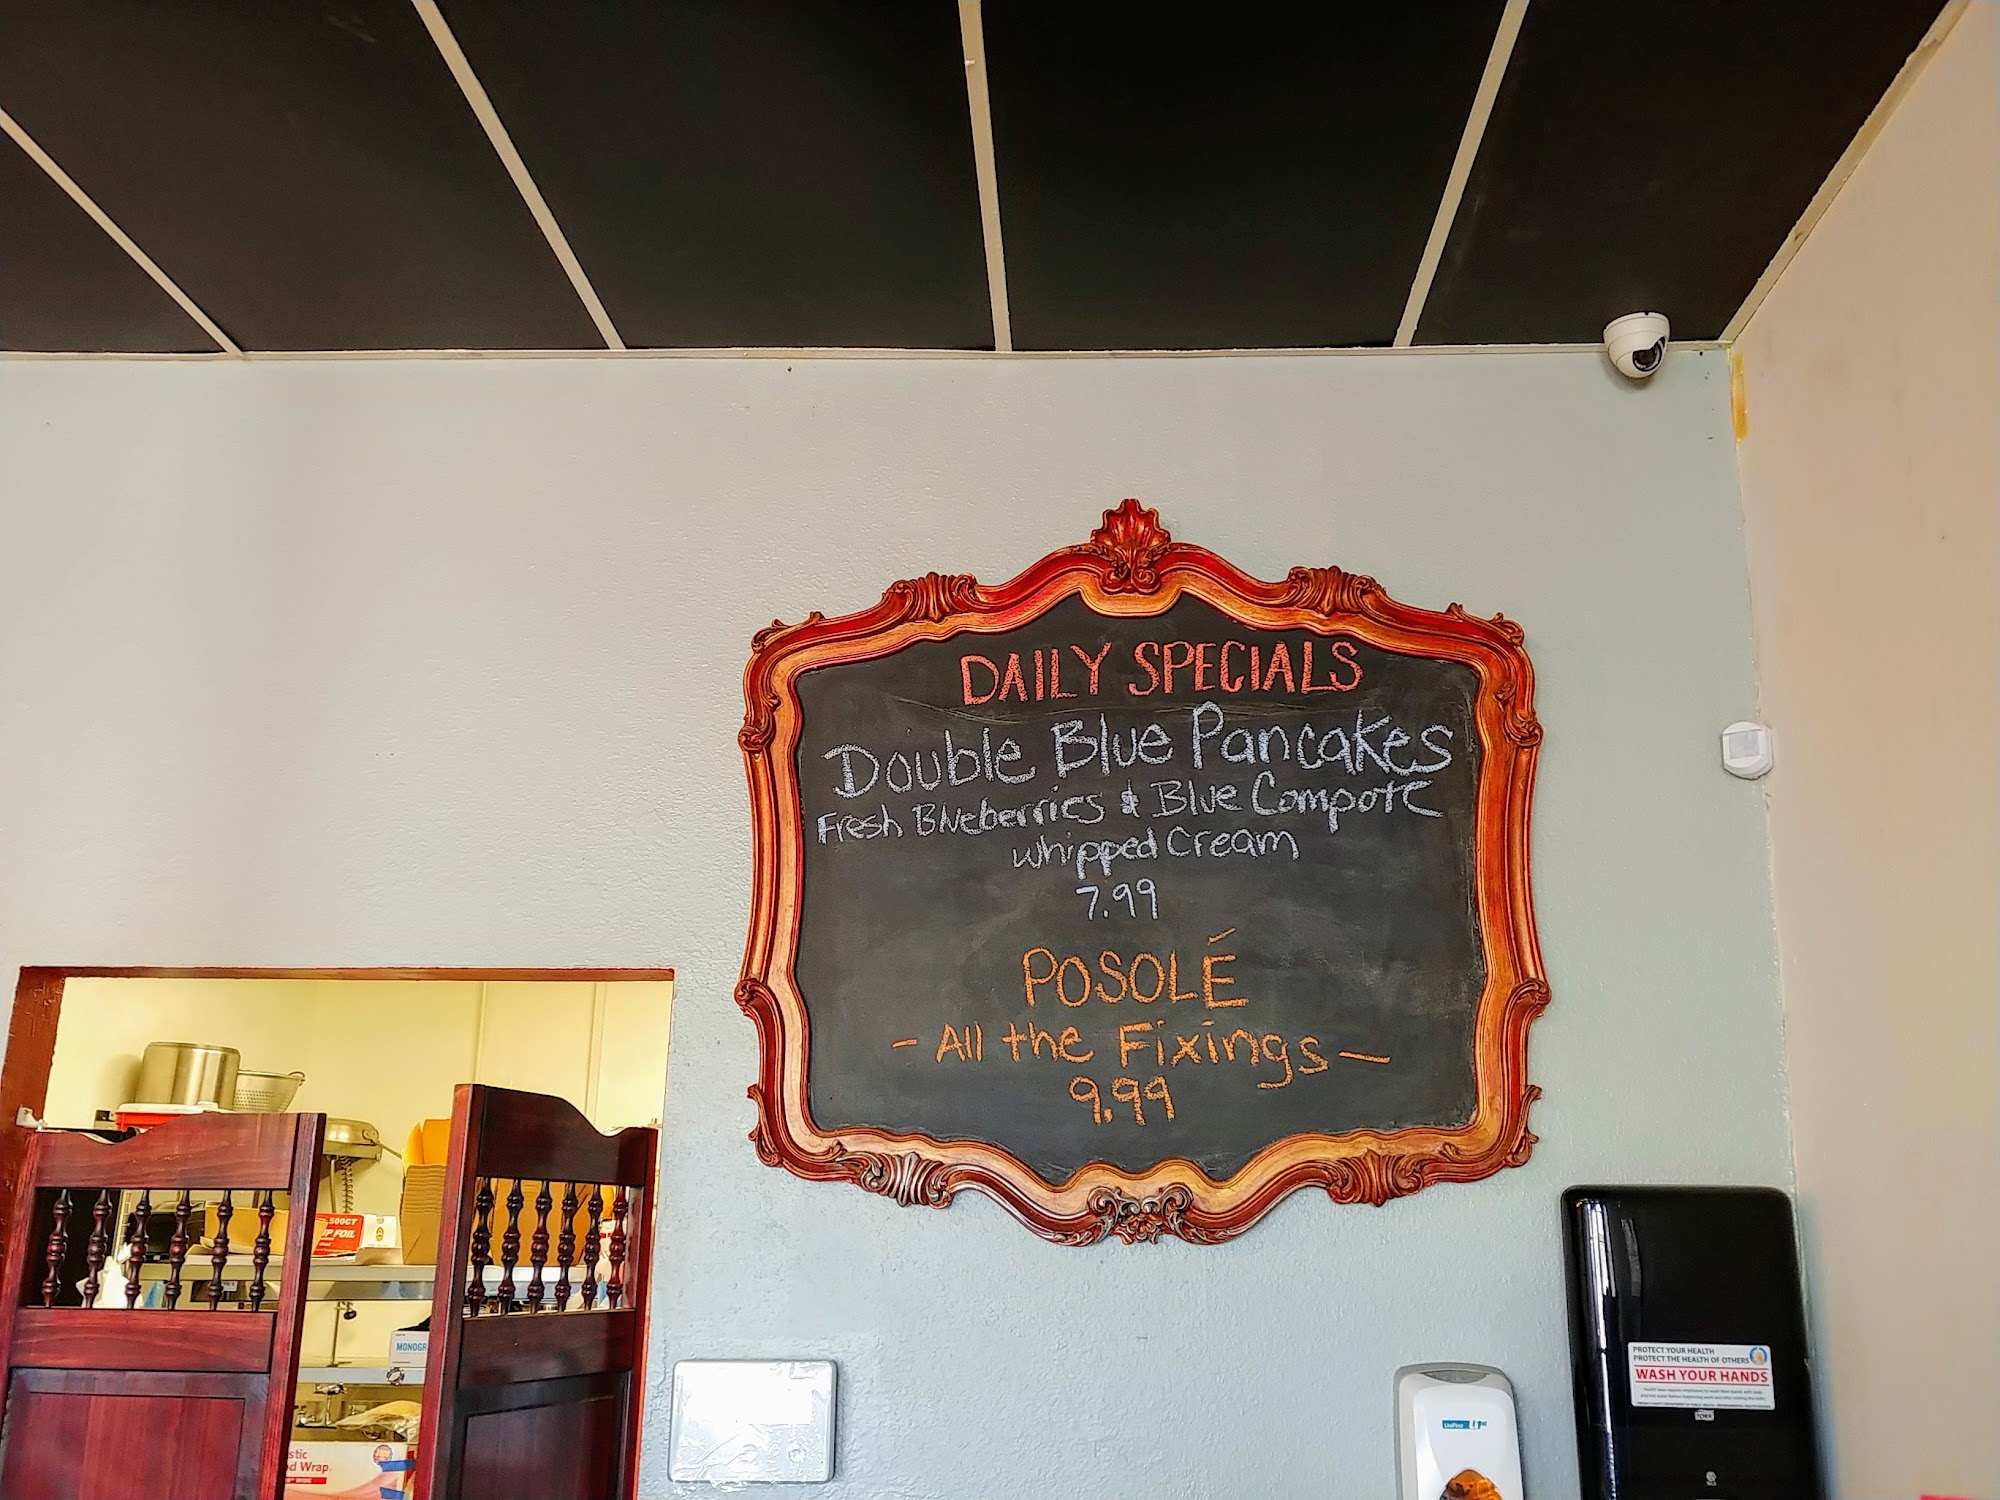 DAILY SPECIALS
Double Blue Pancakes
Fresh Blueberries & Blue Compote
whipped Cream
7.99
POSOLÉ
- All the Fixings -
9.99
500CT
FOIL
MONOGR
stic
d Wrap
PROTECT YOUR HEALTH
PROTECT THE HEALTH OF OTHERS
WASH YOUR HANDS
TORK
UniFirst